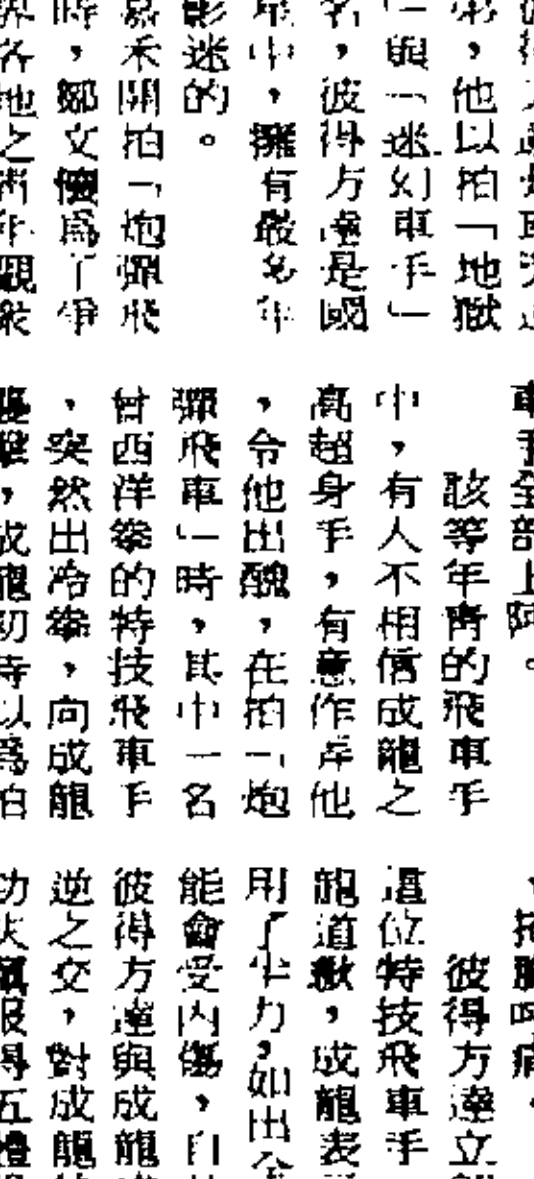 他以拍「地獄
」與「迷幻車手」
名，彼得方達是國
中，擁有嚴多年
影迷的。
嘉禾開拍「炮彈飛
時，鄒文懷爲了爭
界各地之青年觀衆
車手全部上阿。
該等年靑的飛車手
中，有人不相信成龍之
高超身手，有意作弄他
，令他出醜，在拍「炮
彈飛車」時，其中一名
曾西洋拳的特技飛車手
，突然出冷拳，向成龍
擊，成龍初時以爲拍
，抱腕呵痛。
彼得方達立
這位特技飛車手
龍道歉，成龍表
用了半力，如出全
能會受內傷，自
彼得方達與成龍
逆之交，對成龍
功夫佩服得五體